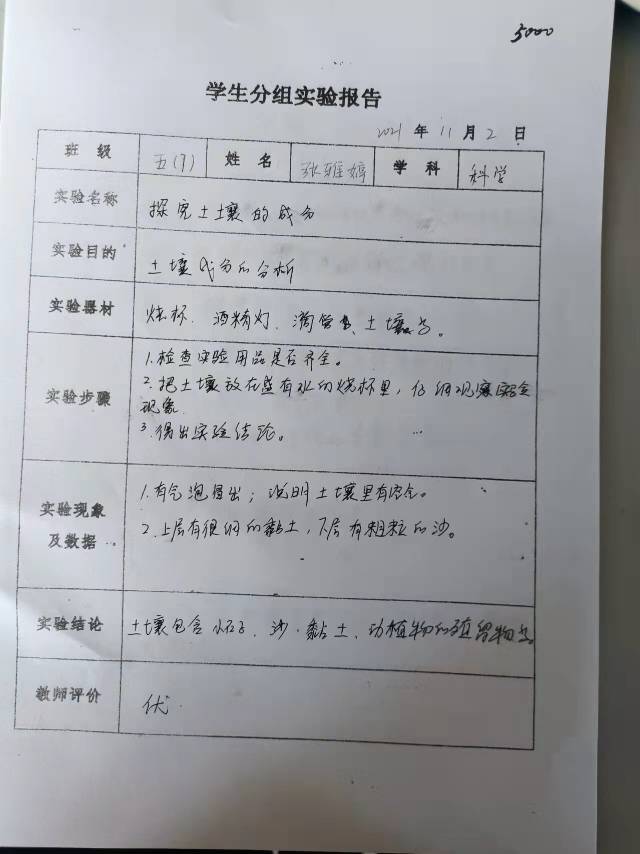 5000
学生分组实验报告
2021 年 11 月 2 日
班 级 五(7) 姓 名 张雅婷 学 科 科学
实验名称 探究土壤的成分
实验目的 土壤成分的分析
实验器材 烧杯、酒精灯、滴管、土壤等。
实验步骤
1.检查实验用品是否齐全。
2.把土壤放在盛有水的烧杯里,仔细观察实验
现象
3.得出实验结论。
实验现象
及数据
1.有气泡冒出;说明土壤里有空气。
2.上层有很细的黏土,下层有粗粒的沙。
实验结论 土壤包含小石子、沙、黏土、动植物的残留物等。
教师评价 优